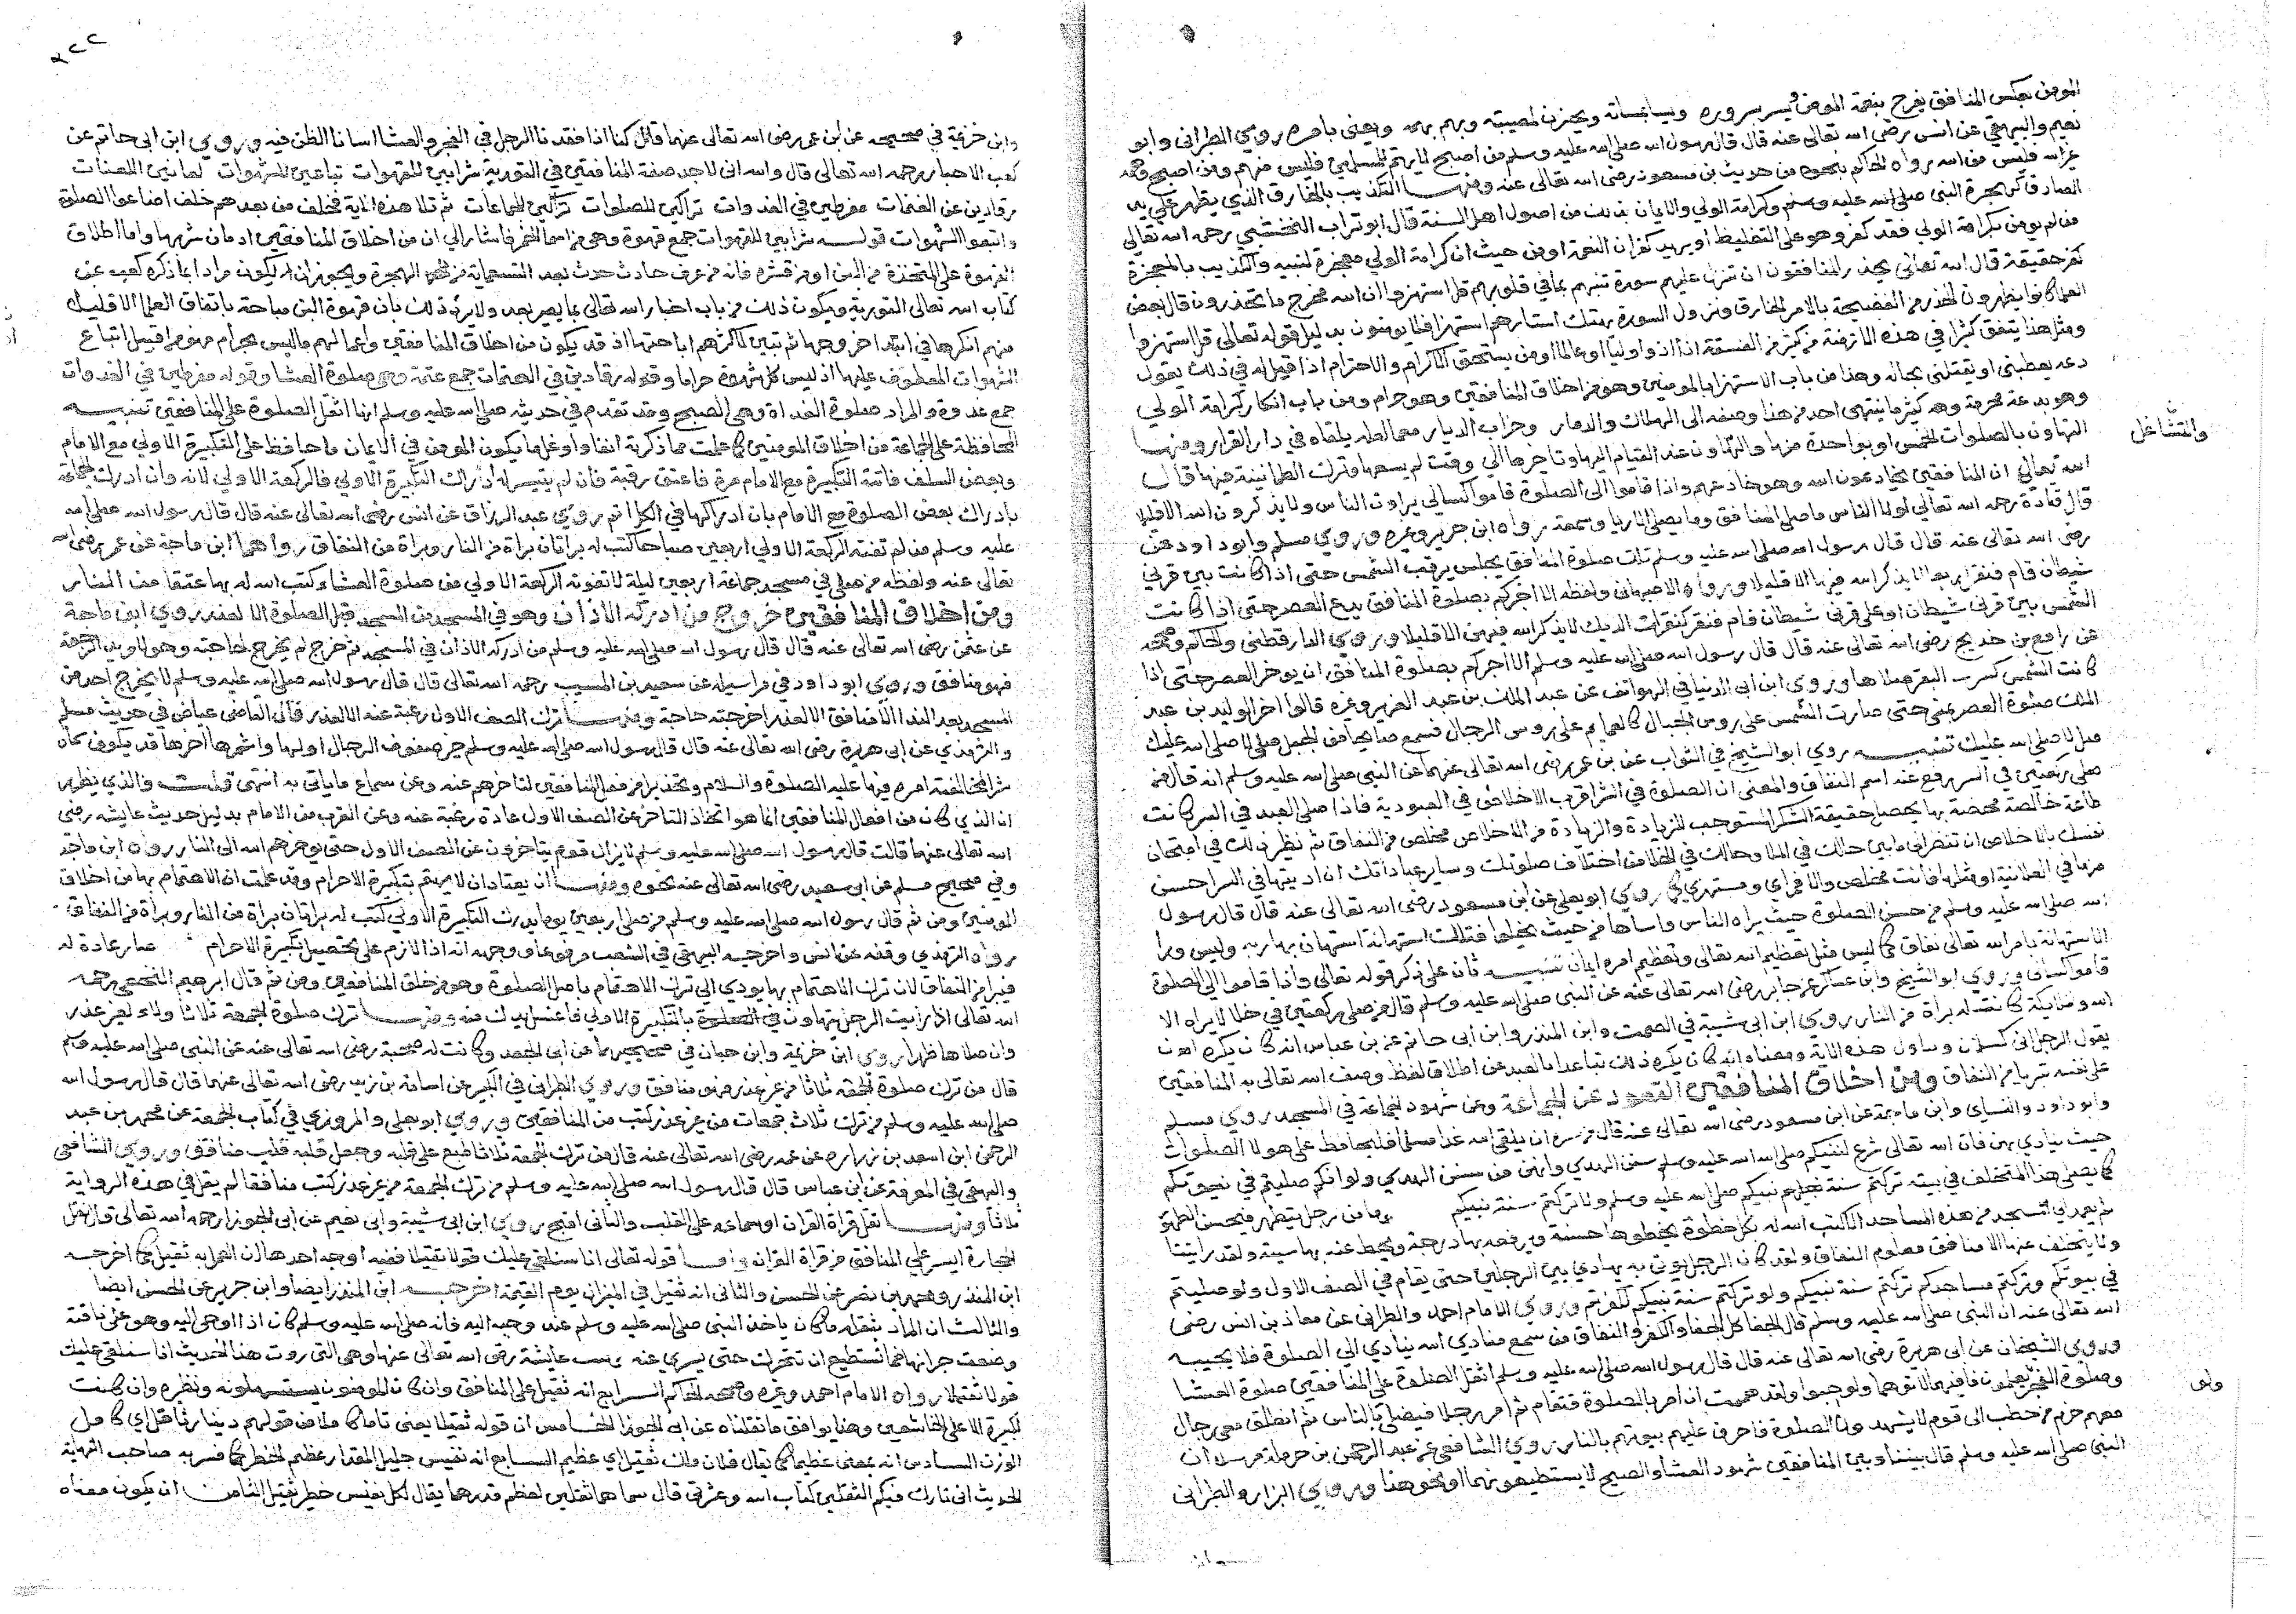 المومن بعكس المنافق يفرح بنعمة المومن ويسر بسروره ويساء بمساءته ويحزن لمصيبته ويهم بهمه ويعني بامره روى الطبراني وابو
نعيم والبيهقي عن انس رضى الله تعالى عنه قال قال رسول الله صلى الله عليه وسلم من اصبح لا يهتم للمسلمين فليس منهم ومن اصبح وهمه
غير الله فليس من الله رواه الحاكم بنحوه من حديث بن مسعود رضى الله تعالى عنه ومنها التكذيب بالخارق الذي يظهر على يد
الصادق كمعجزة النبي صلى الله عليه وسلم وكرامة الولي والايمان بذلك من اصول اهل السنة قال ابو تراب النخشبي رحمه الله تعالى
من لم يومن بكرامة الولي فقد كفر وهو على التغليظ او يريد كفران النعمة او من حيث ان كرامة الولي معجزة لنبيه والتكذيب بالمعجزة
كفر حقيقة قال الله تعالى يحذر المنافقون ان تنزل عليهم سورة تنبئهم بما في قلوبهم قل استهزوا ان الله مخرج ما تحذرون قال بعض
العلما كانوا يظهرون الحذر من الفضيحة بالامر الخارق ونزول السورة بهتك استارهم استهزا فلا يومنون بدليل قوله تعالى قل استهزوا
ومثل هذا يتفق كثيرا في هذه الازمنة من كثير من الفسقة اذا اذوا وليا او عالما او من يستحق الاكرام والاحترام اذا قيل له في ذلك يقول
دعه يعطبني او يقتلني بحاله وهذا من باب الاستهزا بالمومنين وهو من اخلاق المنافقين وهو حرام ومن باب انكار كرامة الولي
وهو بدعة محرمة وهه كثيرا ما ينتهى احد من هذا وصفه الى الهلاك والدمار وخراب الديار مع ما لعله يلقاه في دار القرار ومنها
التهاون بالصلوات الخمس او بواحدة منها والتهاون عند القيام اليها وتاخيرها الى وقت لم يسعها وترك الطمانينة فيها قال
والتشاغل
الله تعالى ان المنافقين يخادعون الله وهو خادعهم واذا قاموا الى الصلوة قاموا كسالى يراون الناس ولا يذكرون الله الا قليلا
قال قتادة رحمه الله تعالى لولا الناس ما صلى المنافق وما يصلي الا ريا وسمعة رواه ابن جرير وغيره وروى مسلم وابو داود عن
رضى الله تعالى عنه قال قال رسول الله صلى الله عليه وسلم تلك صلوة المنافق يجلس يرقب الشمس حتى اذا كانت بين قرني
شيطان قام فنقر اربعا لا يذكر الله فيها الا قليلا ورواه الاصبهاني ولفظه الا اخبركم بصلوة المنافق يدع العصر حتى اذا كانت
الشمس بين قرني شيطان او على قرني شيطان قام فنقر كنقرات الديك لا يذكر الله فيهن الا قليلا وروى الدارقطني والحاكم وصححه
عن رافع بن خديج رضى الله تعالى عنه قال قال رسول الله صلى الله عليه وسلم الا اخبركم بصلوة المنافق ان يوخر العصر حتى اذا
كانت الشمس كثرب البقر صلاها وروى ابن ابي الدنيا في الهواتف عن عبد الملك بن عبد العزيز وغيره قالوا اخر الوليد بن عبد
الملك صلوة العصر بمنى حتى صارت الشمس على روس الجبال كالعمايم على روس الرجال فسمع صايحا من الجبل صلى لا صلى الله عليك
صل لا صلى الله عليك تنبيه روى ابو الشيخ في الثواب عن بن عمر رضى الله تعالى عنهما عن النبي صلى الله عليه وسلم انه قال من
صلى ركعتين في السر رفع عنه اسم النفاق والمعنى ان الصلوة في السر اقرب الاخلاص في العبودية فاذا صلى العبد في السر كانت
طاعة خالصة محضة بها يحصل حقيقة الشكر المستوجب للزيادة والزيادة من الاخلاص مخلص من النفاق ثم نظير ذلك في امتحان
نفسك بالاخلاص ان تنظر الى ما بين حالك في الملا وحالك في الخلا من اختلاف صلوتك وساير عباداتك ان اديتها في السر احسن
منها في العلانية او مثلها فانت مخلص والا فمراي ومستهزي روى ابو يعلى عن ابن مسعود رضى الله تعالى عنه قال قال رسول
الله صلى الله عليه وسلم من حسن الصلوة حيث يراه الناس واساها من حيث يخلوا فتلك استهانة استهان بها ربه وليس ورا
الاستهانة بامر الله تعالى نفاق كما ليس مثل تعظيم الله تعالى وتعظيم امره ايمان تنبيه ثان على ذكر قوله تعالى واذا قاموا الى الصلوة
قاموا كسالى وروى ابو الشيخ وابن عساكر عن جابر رضى الله تعالى عنه عن النبي صلى الله عليه وسلم قال من صلى ركعتين في خلا لا يراه الا
الله وملايكته كانت له براة من النار روى ابن ابي شيبة في الصمت وابن المنذر وابن ابي حاتم عن بن عباس انه كان يكره ان
يقول الرجل اني كسلان ويتاول هذه الاية ومعناه انه كان يكره ذلك تباعدا بالعبد عن اطلاق لفظ وصف الله تعالى به المنافقين
على نفسه تبريا من النفاق ومن اخلاق المنافقين القعود عن الجماعة وعن شهود الجماعة في المسجد روى مسلم
وابو داود والنساي وابن ماجة عن ابن مسعود رضى الله تعالى عنه قال من سره ان يلقى الله غدا مسلما فليحافظ على هولا الصلوات
حيث ينادي بهن فان الله تعالى شرع لنبيكم صلى الله عليه وسلم سنن الهدي وانهن من سنن الهدي ولو انكم صليتم في بيوتكم
كما يصلي هذا المتخلف في بيته تركتم سنة نبيكم صلى الله عليه وسلم ولو تركتم سنة نبيكم وما من رجل يتطهر فيحسن الطهور
ثم يعمد الى مسجد من هذه المساجد الا كتب الله له بكل خطوة يخطوها حسنة ويرفعه بها درجة ويحط عنه بها سيئة ولقد رايتنا
وما يتخلف عنها الا منافق معلوم النفاق ولقد كان الرجل يوتى به يهادى بين الرجلين حتى يقام في الصف الاول ولو صليتم
في بيوتكم وتركتم مساجدكم تركتم سنة نبيكم ولو تركتم سنة نبيكم لكفرتم وروى الامام احمد والطبراني عن معاذ بن انس رضى
الله تعالى عنه ان النبي صلى الله عليه وسلم قال الجفا كل الجفا والكفر والنفاق من سمع منادي الله ينادي الى الصلوة فلا يجيبه
وروى الشيخان عن ابي هريرة رضى الله تعالى عنه قال قال رسول الله صلى الله عليه وسلم اثقل الصلوة على المنافقين صلوة العشا
وصلوة الفجر لو يعلمون ما فيهما لاتوهما ولو حبوا ولقد هممت ان امر بالصلوة فتقام ثم امر رجلا فيصلي بالناس ثم انطلق معى رجال
ولو
معهم حزم من حطب الى قوم لا يشهدون الصلوة فاحرق عليهم بيوتهم بالنار روى الشافعي عن عبد الرحمن بن حرملة مرسلا ان
النبي صلى الله عليه وسلم قال بيننا وبين المنافقين شهود العشا والصبح لا يستطيعونهما او نحو هذا وروى البزار والطبراني
وابن خزيمة في صحيحه عن ابن عمر رضى الله تعالى عنهما قال كنا اذا فقدنا الرجل في الفجر والعشا اسانا الظن فيه وروى ابن ابي حاتم عن
كعب الاحبار رحمه الله تعالى قال والله انى لاجد صفة المنافقين في التورية شرابين للقهوات تباعين للشهوات لعانين اللعنات
رقادين عن العتمات مفرطين في الغدوات تراكين للصلوات تراكين للجماعات ثم تلا هذه الاية فخلف من بعدهم خلف اضاعوا الصلوة
واتبعوا الشهوات قوله شرابين للقهوات جمع قهوة وهي من اسما الخمر فاشار الى ان من اخلاق المنافقين ادمان شربها واما اطلاق
القهوة على المتخذة من البن او من قشره فانه من عرف حادث حدث بعد التسعماية من الهجرة ويجوز ان يكون مرادا بما ذكره كعب عن
كتاب الله تعالى التورية ويكون ذلك من باب اخبار الله تعالى بما يصير بعد ولا يرد ذلك بان قهوة البن مباحة باتفاق العلما الا قليلا
منهم انكرها في ابتدا خروجها ثم تبين لاكثرهم اباحتها اذ قد يكون من اخلاق المنافقين واعمالهم ما ليس بحرام منهوم من قبيل اتباع
الشهوات المعطوف عليها اذ ليس كل شهوة حراما وقوله رقادين في العتمات جمع عتمة وهي صلوة العشا وقوله مفرطين في الغدوات
جمع غدوة والمراد صلوة الغداة وهي الصبح وقد تقدم في حديثه صلى الله عليه وسلم انها اثقل الصلوة على المنافقين تنبيه
المحافظة على الجماعة من اخلاق المومنين كما علمت مما ذكرته انفا واوغل ما يكون المومن في الايمان ما حافظ على التكبيرة الاولى مع الامام
وبعض السلف فاتته التكبيرة مع الامام مرة فاعتق رقبة فان لم يتيسر له ادراك التكبيرة الاولى فالركعة الاولى لانه وان ادرك الجماعة
بادراك بعض الصلوة مع الامام بان ادراكها في الكل اتم روى عبد الرزاق عن انس رضى الله تعالى عنه قال قال رسول الله صلى الله
عليه وسلم من لم تفته الركعة الاولى اربعين صباحا كتب له براتان براة من النار وبراة من النفاق رواهما ابن ماجة عن عمر رضى الله
تعالى عنه ولفظه من صلى في مسجد جماعة اربعين ليلة لا تفوته الركعة الاولى من صلوة العشا كتب الله له بها عتقا من النار
ومن اخلاق المنافقين خروج من ادركه الاذان وهو في المسجد من المسجد قبل الصلوة الا لعذر روى ابن ماجة
عن عثمن رضى الله تعالى عنه قال قال رسول الله صلى الله عليه وسلم من ادركه الاذان في المسجد ثم خرج لم يخرج لحاجته وهو لا يريد الرجعة
فهو منافق وروى ابو داود في مراسيله عن سعيد بن المسيب رحمه الله تعالى قال قال رسول الله صلى الله عليه وسلم لا يخرج احد من
المسجد بعد الندا الا منافق الا لعذر اخرجته حاجة ومنها ترك الصف الاول رغبة عنه الا لعذر قال القاضى عياض في حديث مسلم
والترمذي عن ابي هريرة رضى الله تعالى عنه قال قال رسول الله صلى الله عليه وسلم خير صفوف الرجال اولها وشرها اخرها قد يكون سماه
شرا لمخالفته امره فيها عليه الصلوة والسلام وتحذيرا من فعل المنافقين لتاخرهم عنه وعن سماع ما ياتى به انتهى قلت والذي يظهر
ان الذي كان من افعال المنافقين انما هو اتخاذ التاخر عن الصف الاول عادة رغبة عنه وعن القرب من الامام بدليل حديث عايشه رضى
الله تعالى عنها قالت قال رسول الله صلى الله عليه وسلم لا يزال قوم يتاخرون عن الصف الاول حتى يوخرهم الله الى النار رواه ابن ماجه
وفي صحيح مسلم عن ابي سعيد رضى الله تعالى عنه نحوه ومنها ان يعتاد ان لا يهتم بتكبيرة الاحرام وقد علمت ان الاهتمام بها من اخلاق
المومنين ومن ثم قال رسول الله صلى الله عليه وسلم من صلى اربعين يوما يدرك التكبيرة الاولى كتب له براتان براة من النار وبراة من النفاق
رواه الترمذي وقفه عن انس واخرجه البيهقي في الشعب مرفوعا ووجهه انه اذا لازم على تحصيل تكبيرة الاحرام صار عادة له
فيبرا من النفاق لان ترك الاهتمام بها يودي الى ترك الاهتمام باصل الصلوة وهو من خلق المنافقين ومن ثم قال ابرهيم النخعي رحمه
الله تعالى اذا رايت الرجل يتهاون في بالتكبيرة الاولى فاغسل يدك منه ومنها ترك صلوة الجمعة ثلاثا ولاء لغير عذر
وان صلاها ظهرا روى ابن خزيمة وابن حبان في صحيحيهما عن ابي الجعد وكانت له صحبة رضى الله تعالى عنه عن النبي صلى الله عليه وسلم
قال من ترك صلوة الجمعه ثلاثا من غير عذر فهو منافق وروى الطبراني في الكبير عن اسامة بن زيد رضى الله تعالى عنهما قال قال رسول الله
صلى الله عليه وسلم من ترك ثلاث جمعات من غير عذر كتب من المنافقين وروى ابو يعلى والمروزي في كتاب الجمعة عن محمد بن عبد
الرحمن ابن اسعد بن زراره عن عمه رضى الله تعالى عنه قال من ترك الجمعة ثلاثا طبع على قلبه وجعل قلبه قلب منافق وروى الشافعي
والبيهقي في المعرفة عن ابن عباس قال قال رسول الله صلى الله عليه وسلم من ترك الجمعة من غير عذر كتب منافقا لم يقل في هذه الرواية
ثلاثا ومنها ثقل قراة القران او سماعه على القلب والثاني اقبح روى ابن ابي شيبة وابي نعيم عن ابي الجوزا رحمه الله تعالى قال نقل
الحجارة ايسر على المنافق من قراة القران واما قوله تعالى انا سنلقي عليك قولا ثقيلا ففيه اوجه احدها ان العمل به ثقيل كما اخرجه
ابن المنذر ومحمد بن نصر عن الحسن والثاني انه ثقيل في الميزان يوم القيمة اخرجه ابن المنذر ايضا وابن جرير عن الحسن ايضا
والثالث ان المراد بثقله ما كان ياخذ النبي صلى الله عليه وسلم عند وحيه اليه فانه صلى الله عليه وسلم كان اذا اوحى اليه وهو على ناقته
وضعت جرانها فما تستطيع ان تتحرك حتى يسرى عنه عايشة رضى الله تعالى عنها وهي التي روت هذا الحديث انا سنلقي عليك
قولا ثقيلا رواه الامام احمد وغيره وصححه الحاكم الرابع انه ثقيل على المنافق وان كان المومنون يستسهلونه ونظيره وان كانت
لكبيرة الا على الخاشعين وهذا يوافق ما نقلناه عن ابي الجوزا الخامس ان قوله ثقيلا يعني تاما كاملا من قولهم دينار ثاقل اي كامل
الوزن السادس انه بمعنى عظيما كما يقال فلان ملك ثقيل اي عظيم السابع انه نفيس جليل المقدار عظيم الخطر كما فسر به صاحب النهاية
الحديث انى تارك فيكم الثقلين كتاب الله وعترتى قال سماهما ثقلين لعظم قدرهما يقال لكل نفيس خطير ثقيل الثامن ان يكون معناه